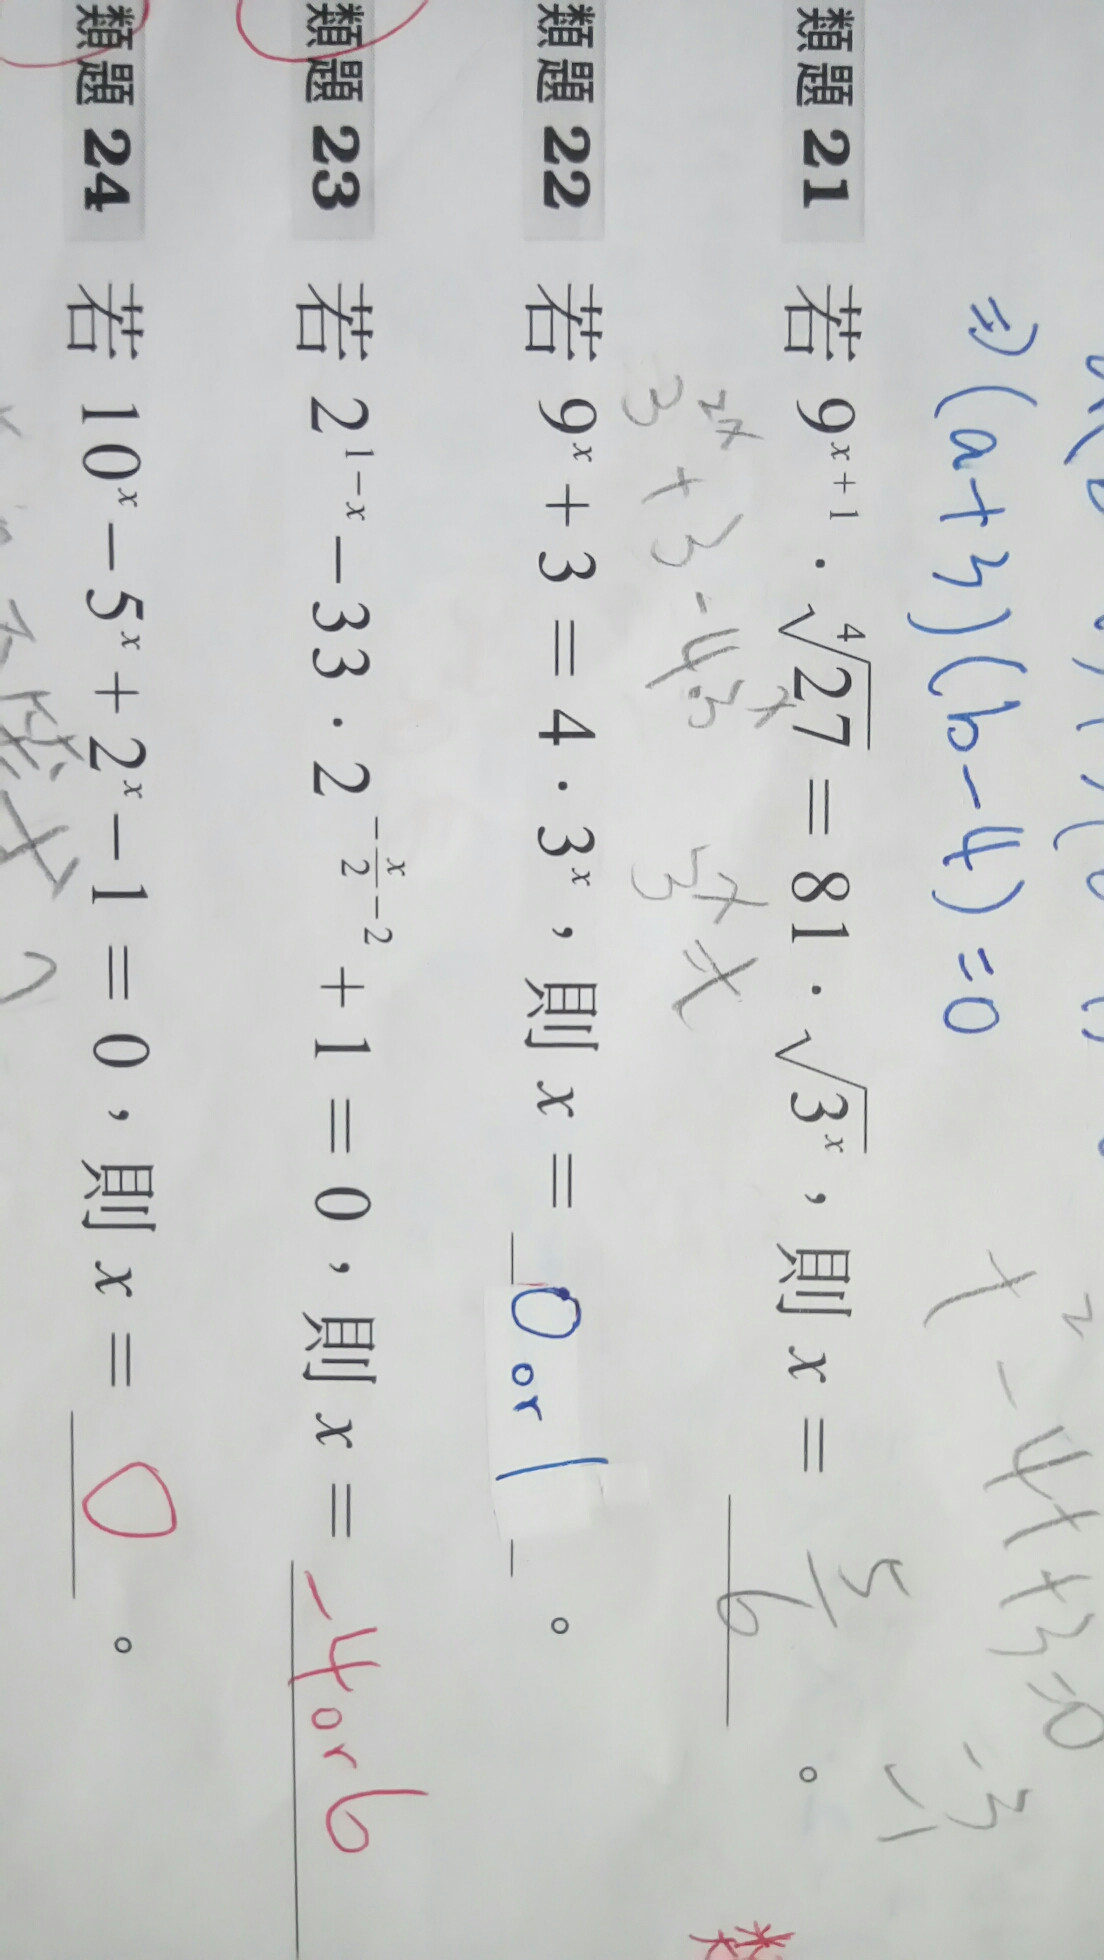 ⇒ (a+3)(b-4) = 0
x² - 4x + 3 = 0
-3
-1
類題 21 若 9^{x+1} · ⁴√27 = 81 · √3^x，則 x = 5/6 。
3^{2x} + 3 - 4·3^x 3^x = x
類題 22 若 9^x + 3 = 4 · 3^x，則 x = 0 or 1 。
類題 23 若 2^{1-x} - 33 · 2^{-x/2-2} + 1 = 0，則 x = -4 or 6
類題 24 若 10^x - 5^x + 2^x - 1 = 0，則 x = 0 。